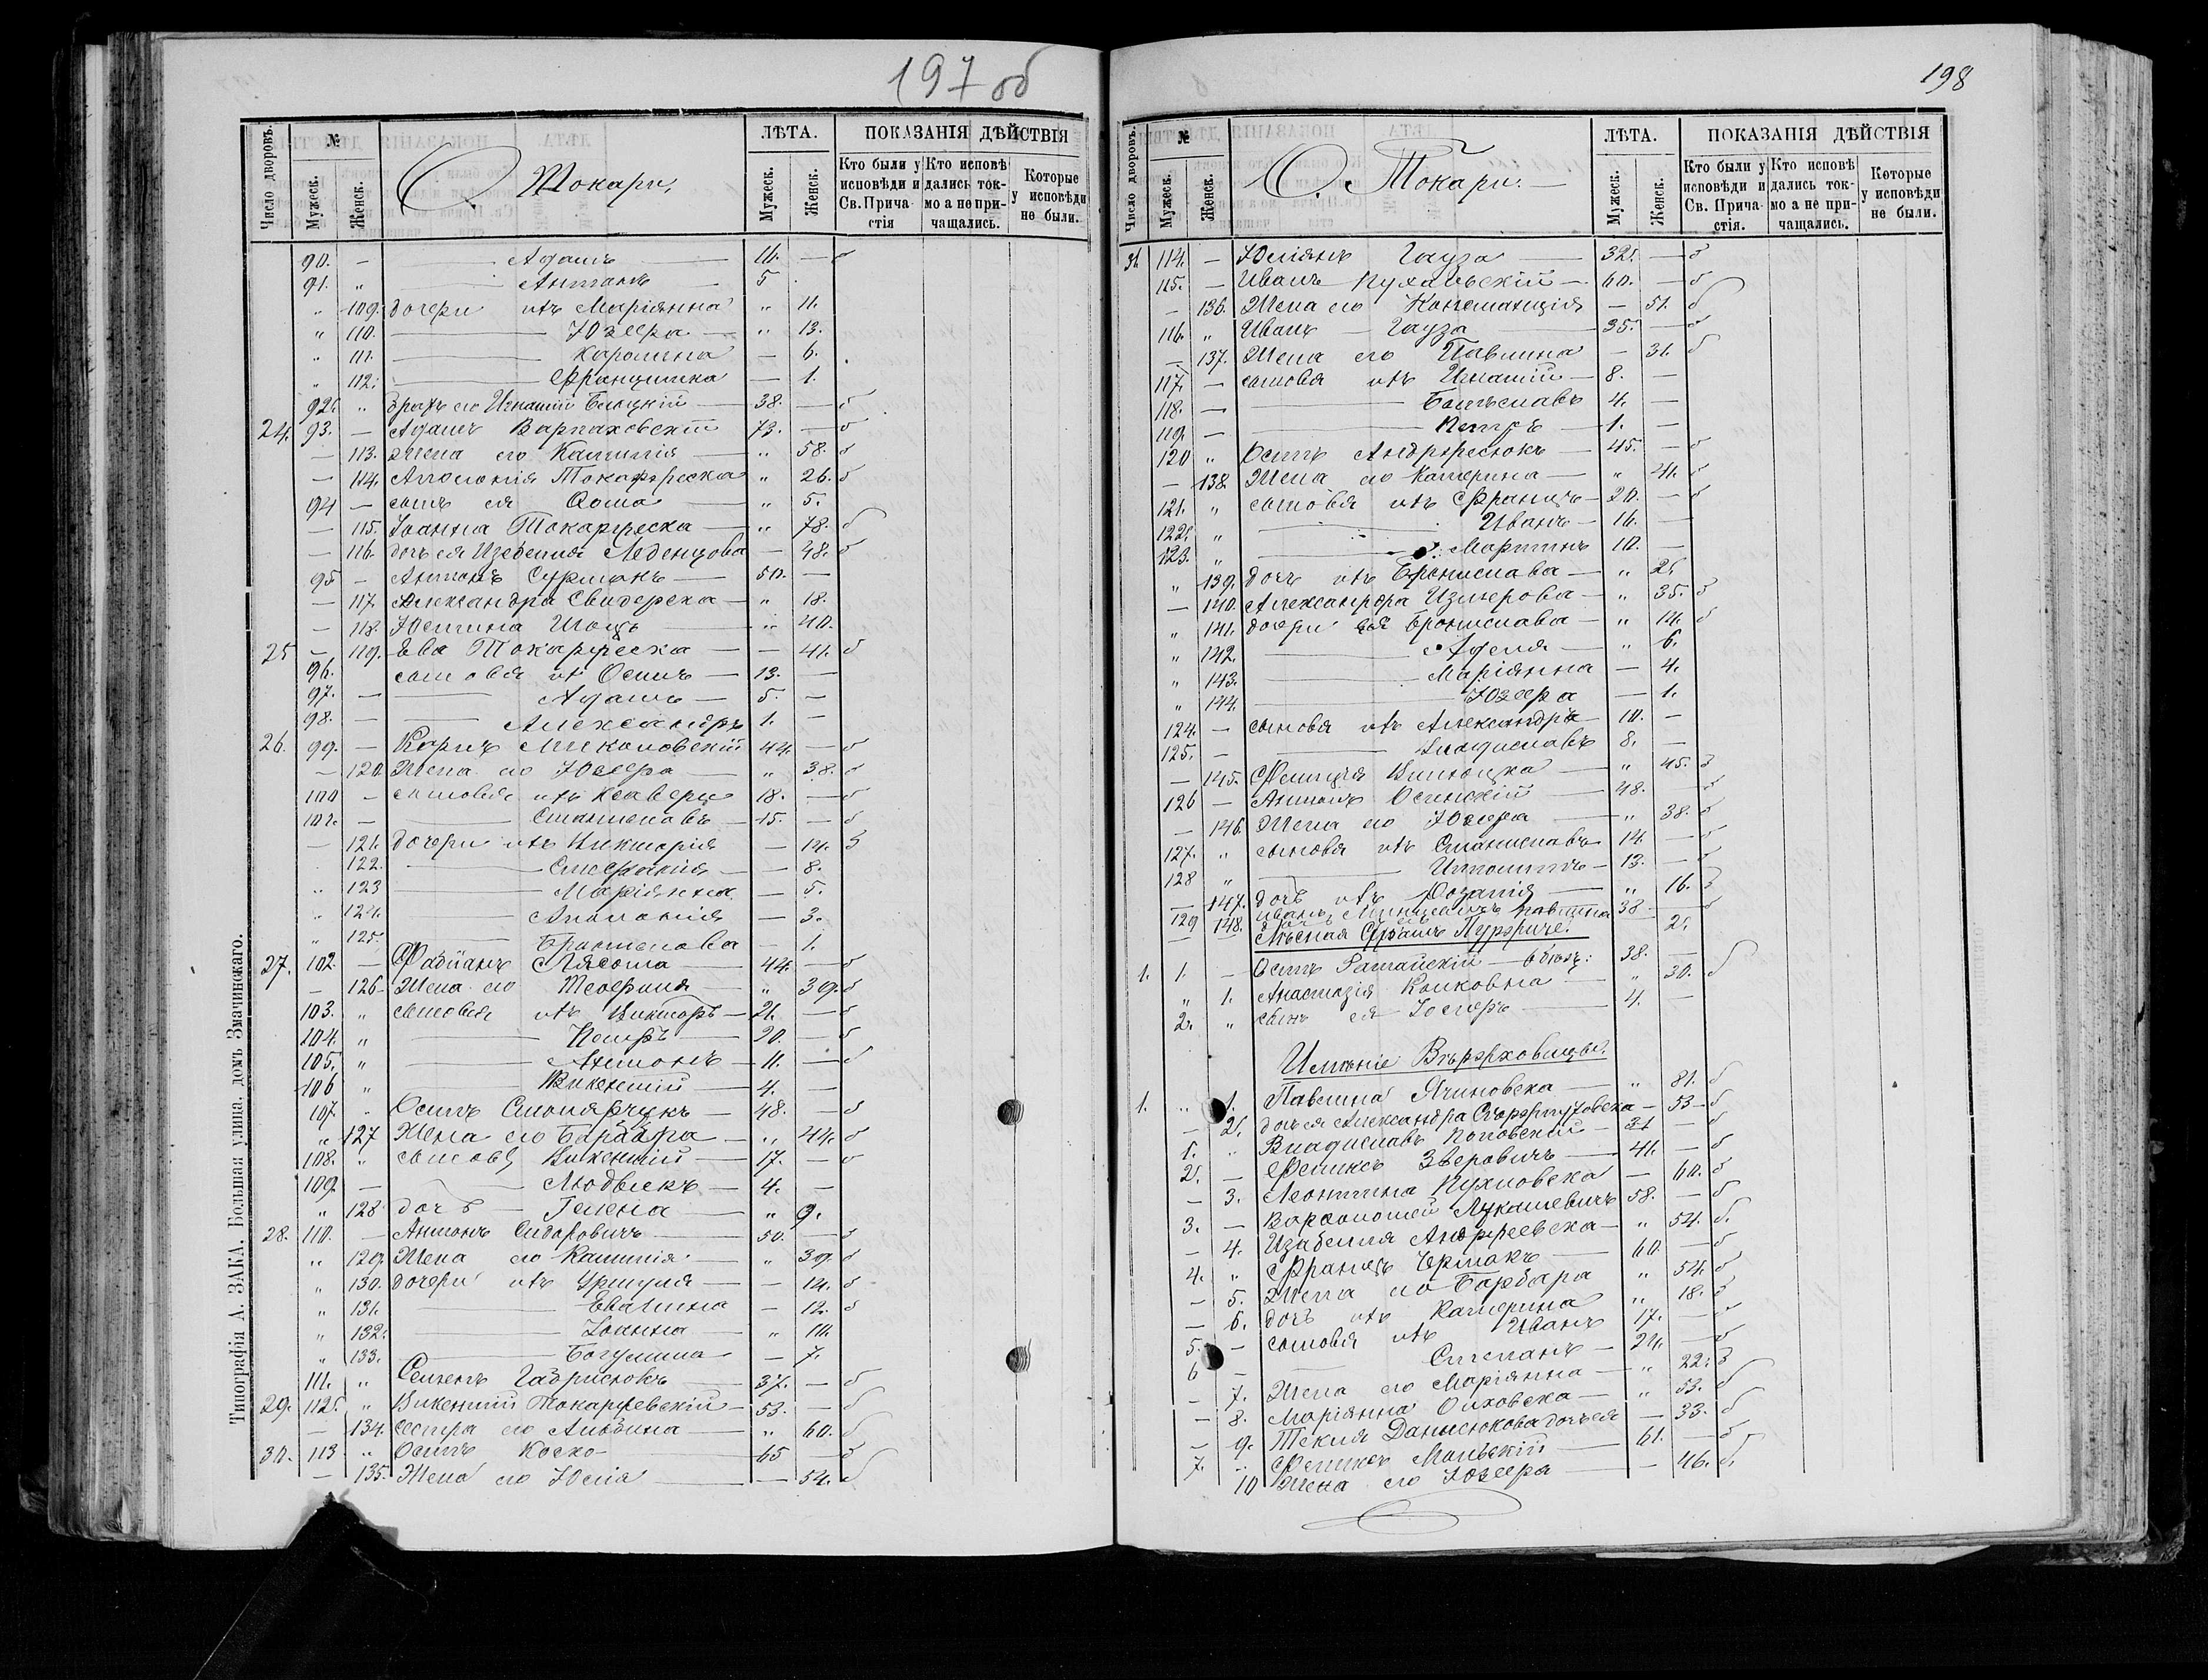 197 об
Число дворовъ.
№
Мужеск.
Женск.
О. Токари.
ЛѢТА.
Мужеск.
Женск.
ПОКАЗАНІЯ ДѢЙСТВІЯ
Кто были у исповѣди и Св. Прича-стія
Кто исповѣ дались ток-мо а не при-чащались.
Которые у исповѣди не были.
90. — Адамъ 11. — б
91. „ Антонъ 5
„ 109. дочери ихъ Маріянна „ 11.
„ 110. Юзефа „ 13.
„ 111. Каролина — 6.
„ 112. Францишка — 1.
92. „ братъ его Игнатій 38. — б
24. 93. — Адамъ Варпаховскій 73. — б
— 113. Жена его „ 58. б
— 114. Аполонія Токаржевска „ 26. б
94 — сынъ ея Ѳома „ 5.
— 115. Іоанна Токаржевска „ 78. б
— 116. дочь ея — 48. б
95 — Антонъ Сурманъ 50. —
— 117. Александра Свидерска „ 18.
— 118. Юстина „ 40.
25 — 119. Ева Токаржевска — 41. б
96. сыновья их Осипъ 13. —
97. — Адамъ 5. —
98. — Александръ 1. —
26. 99. — Карлъ 44. — б
— 120 Жена его Юзефа „ 38. б
100 — сыновья ихъ Ксаверы 18. — б
101. — Станиславъ 15. — б
— 121. дочери ихъ Викторія — 14. б
122. Стефанія — 8.
„ 123 Маріянна — 5.
„ 124. Аполонія — 3.
„ 125. Брониславa — 1.
27. 102. — Фабіанъ Лясота 44. — б
— 126 Жена его Теофиля „ 39. б
103. „ сыновья ихъ Викторъ 21. — б
104. „ Петръ 20. — б
105. „ Антонъ 11. — б
106 „ Викентій 4. —
107 „ Осипъ 48. — б
„ 127 Жена его Барбара „ 44. б
108. „ сыновья Викентій 17. — б
109. — Людвикъ 4. —
„ 128 дочь Гелена „ 9.
28. 110. — Антонъ Сидоровичъ 50. — б
„ 129. Жена его „ 39. б
„ 130. дочери ихъ Уршуля — 14. б
„ 131. Евалина — 12. б
„ 132. Іоанна „ 10.
„ 133. Богумила — 7.
111. „ Семенъ Гаврилюкъ 37. — б
29. 112. „ Викентій Токаржевскій 53. — б
— 134. сестра его Альбина „ 60. б
30. 113 „ Осипъ Коско 65 — б
— 135. Жена его Юлія — 54. б
Типографія А. ЗАКА. Большая улица. домъ Змачинскаго.
198
Число дворовъ.
№
Мужеск.
Женск.
О. Токари.
ЛѢТА.
Мужеск.
Женск.
ПОКАЗАНІЯ ДѢЙСТВІЯ
Кто были у исповѣди и Св. Прича-стія.
Кто исповѣ дались ток-мо а не при-чащались.
Которые у исповѣди не были.
31. 114. — Юліянъ Гауза 32. — б
115. — Иванъ Кухальскій 60. — б
— 136. Жена его Констанція — 51. б
116. „ Иванъ Гауза 35. — б
— 137. Жена его Павлина — 31. б
117. — сыновья ихъ Игнатій 8. —
118. — Болеславъ 4. —
119. — Петръ 1. —
120 „ Осипъ Андржеюкъ 45. — б
— 138 Жена его Катерина „ 41. б
121. „ сыновья ихъ Францъ 20. — б
122. „ Иванъ 16. —
123. „ Мартинъ 10. —
„ 139. дочь ихъ Бронислава „ 2.
— 140. Александра „ 35. б
„ 141. дочери ея Бронислава „ 14. б
„ 142. Аделя „ 6.
„ 143. Маріянна — 4.
„ 144. Юзефа — 1.
124. — сыновья ихъ Александръ 10. —
125. — Владиславъ 8. —
— 145. Фелиція „ 45. б
126 — Антонъ Осинскій 48. — б
— 146. Жена его Юзефа „ 38. б
127. „ сыновья ихъ Станиславъ 14. — б
128 „ Ипполитъ 13. — б
— 147. дочь ихъ Розалія „ 16. б
129 148. Иванъ 38 — б
Лѣсная Стража 2.
1. 1. — Осипъ 38. —
„ 1. Анастазія „ 30. б
2. „ сынъ ея 4. —
Имѣніе Вѣржховицы.
1. „ 1. Павлина Ячиновска „ 81. б
— 2. дочь ея Александра — 53 б
1. „ Владиславъ 31 — б
2. — Феликсъ Зверовичъ 41. — б
— 3. Леонтина — 60. б
3. — Варѳоломей Лукашевичъ 58. — б
— 4. Изабелля Анджеевска „ 54. б.
4. „ Францъ Ермакъ 60 — б
— 5. Жена его Барбара „ 54. б
— 6. дочь ихъ Катерина „ 18. б
5. — сыновья ихъ Иванъ 17. — б
6 — Степанъ 24. — б
— 7. Жена его Маріянна „ 22. б
— 8. Маріянна Ольховска „ 53. б
— 9. Текля Данилюкова дочь ея — 33. б
7. „ Феликсъ 61. — б
10 Жена его Юзефа — 46. б.